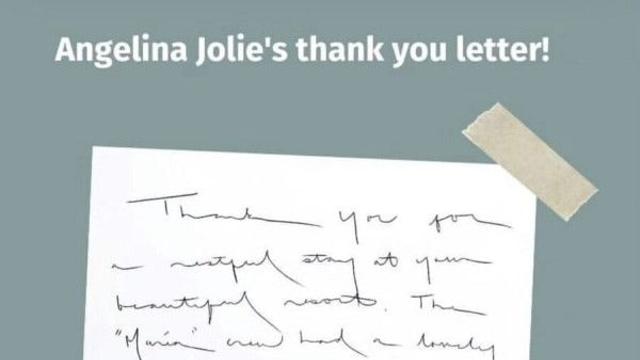 Angelina Jolie's thank you letter!
Thank you for
a restful stay at your
beautiful resort. The
"Maria" crew had a lovely